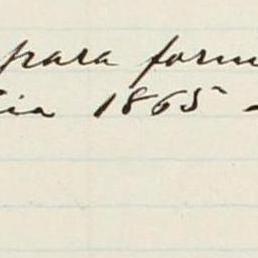 para form
cia 1865 -